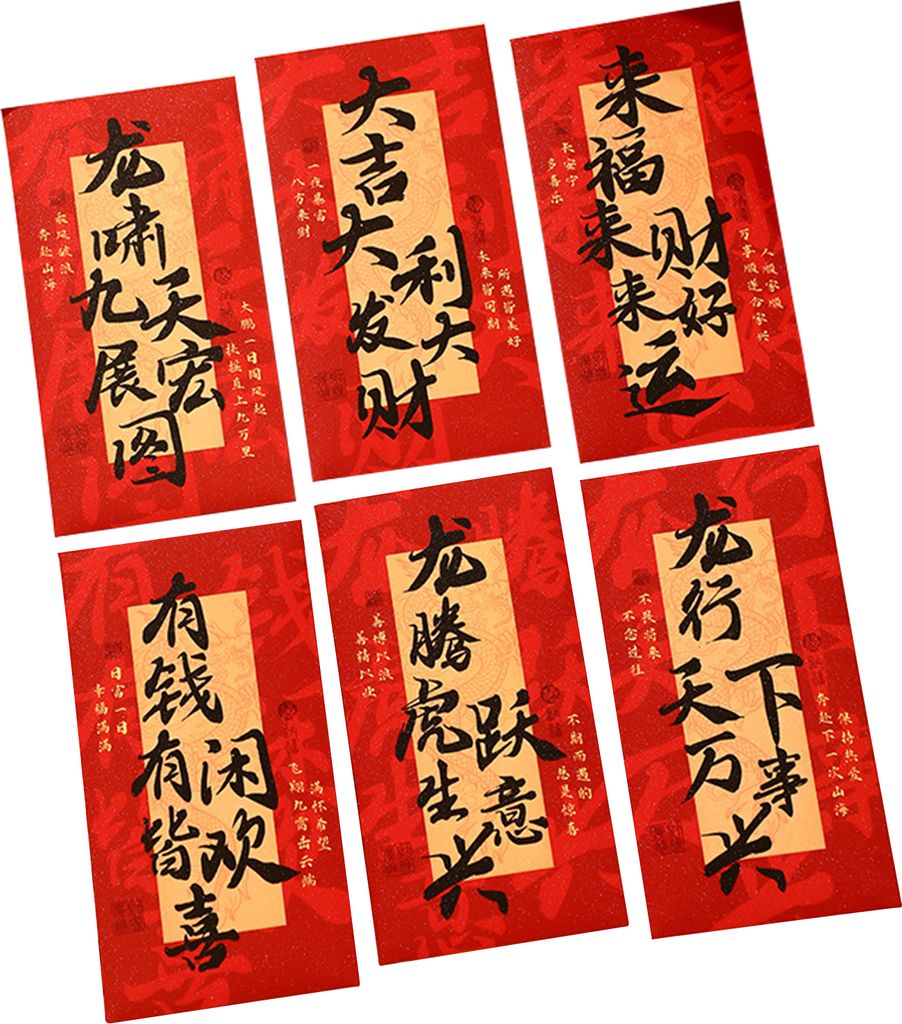 龙啸九天展宏图
风破浪
奔赴山海
大鹏一日同风起
扶摇直上九万里
大吉大利大发财
一夜暴富
八方来财
所遇皆美好
未来皆可期
来福来财来好运
长安宁
多喜乐
人顺家顺
万事顺遂合家兴
有钱有闲皆欢喜
日富一日
幸福满满
满怀希望
飞翔九霄击云端
龙腾虎跃生意兴
不期而遇的
总是惊喜
龙行天下万事兴
不畏将来
不念过往
保持热爱
奔赴下一次山海